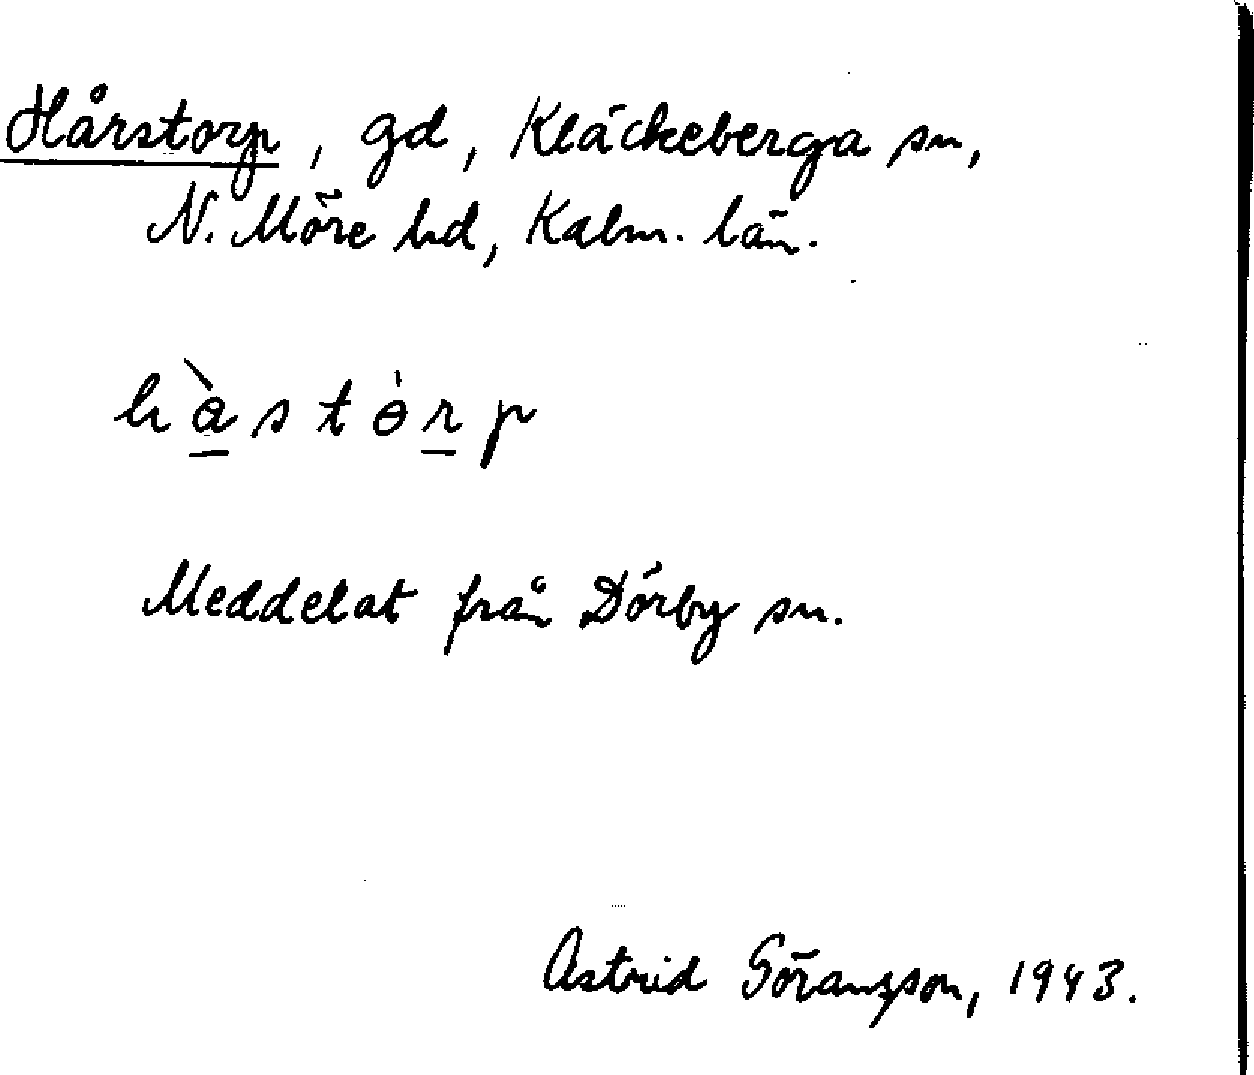 Hårstorp, gd, Kläckeberga sn,
N. Möre hd, Kalm. län.
hàstòrp
Meddelat från Dörby sn.
Astrid Göransson, 1943.